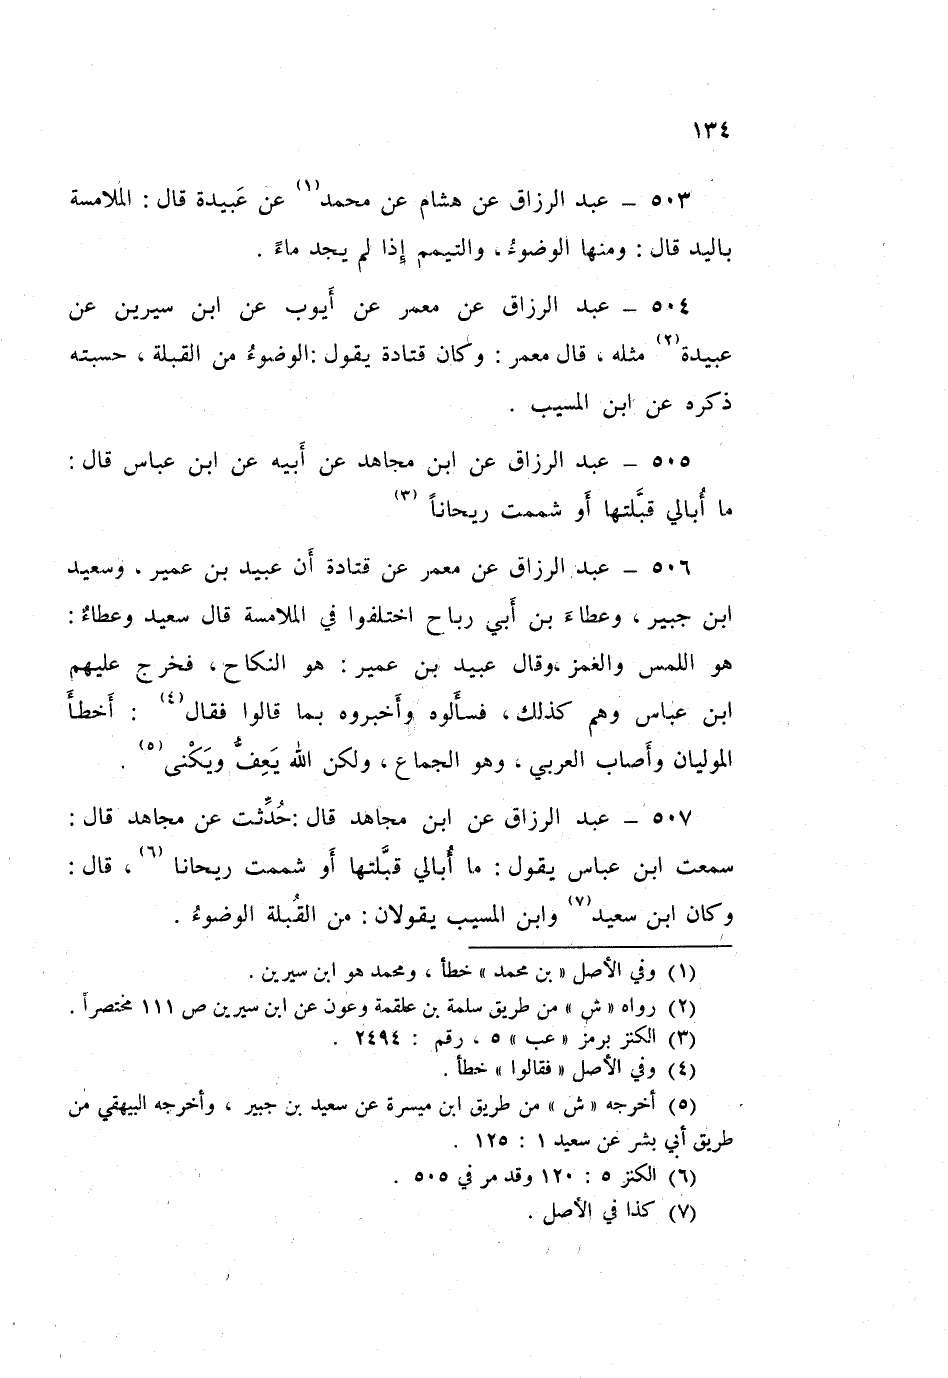 ١٣٤
٥٠٣ – عبد الرزاق عن هشام عن محمد(١) عن عَبيدة قال : الملامسة
باليد قال : ومنها الوضوءُ، والتيمم إِذا لم يجد ماءً .
٥٠٤ – عبد الرزاق عن معمر عن أَيوب عن ابن سيرين عن
عبيدة(٢) مثله ، قال معمر : وكان قتادة يقول :الوضوءُ من القبلة ، حسبته
ذكره عن ابن المسيب .
٥٠٥ – عبد الرزاق عن ابن مجاهد عن أَبيه عن ابن عباس قال :
ما أُبالي قبَّلتها أَو شممت ريحاناً (٣)
٥٠٦ – عبد الرزاق عن معمر عن قتادة أَن عبيد بن عمير ، وسعيد
ابن جبير ، وعطاءَ بن أَبي رباح اختلفوا في الملامسة قال سعيد وعطاءٌ :
هو اللمس والغمز ،وقال عبيد بن عمير : هو النكاح ، فخرج عليهم
ابن عباس وهم كذلك ، فسأَلوه وأَخبروه بما قالوا فقال(٤) : أَخطأَ
الموليان وأَصاب العربي ، وهو الجماع ، ولكن الله يَعِفُّ ويَكْنى(٥) .
٥٠٧ – عبد الرزاق عن ابن مجاهد قال :حُدِّثت عن مجاهد قال :
سمعت ابن عباس يقول : ما أُبالي قبَّلتها أَو شممت ريحانا (٦) ، قال :
وكان ابن سعيد(٧) وابن المسيب يقولان : من القُبلة الوضوءُ .
(١) وفي الأصل « بن محمد » خطأ ، ومحمد هو ابن سيرين .
(٢) رواه « ش » من طريق سلمة بن علقمة وعون عن ابن سيرين ص ١١١ مختصراً .
(٣) الكنز برمز « عب » ٥ ، رقم : ٢٤٩٤ .
(٤) وفي الأصل « فقالوا » خطأ .
(٥) أخرجه « ش » من طريق ابن ميسرة عن سعيد بن جبير ، وأخرجه البيهقي من
طريق أبي بشر عن سعيد ١ : ١٢٥ .
(٦) الكنز ٥ : ١٢٠ وقد مر في ٥٠٥ .
(٧) كذا في الأصل .